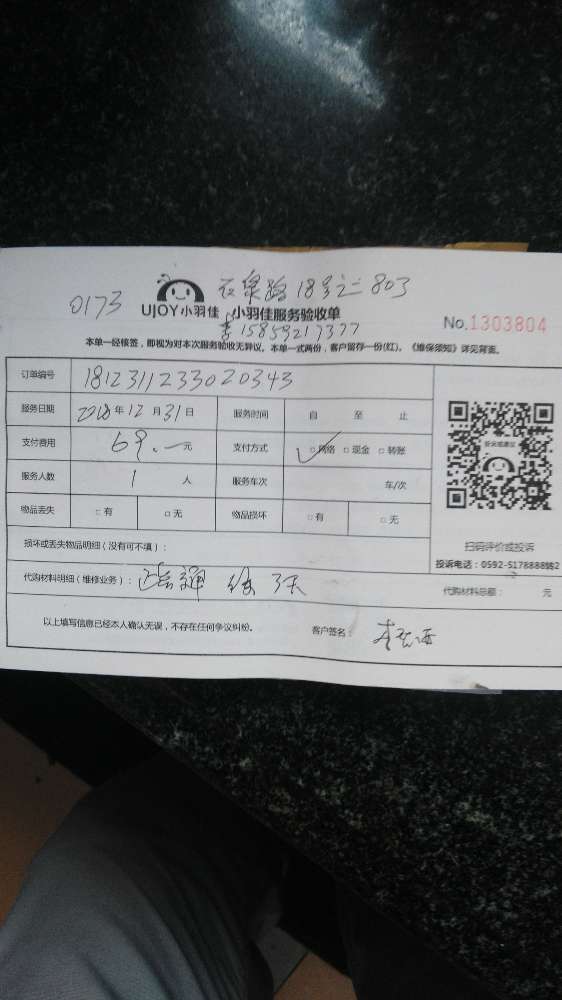 0173 石泉路18号之二803
UJOY小羽佳 小羽佳服务验收单
李15859217377
No.1303804
本单一经核签，即视为对本次服务验收无异议。本单一式两份，客户留存一份(红)。《维保须知》详见背面。
订单编号 1812311233020343
服务日期 2018年12月31日 服务时间 自 至 止
支付费用 69.一元 支付方式 ☑网络 □现金 □转账
服务人数 1 人 服务车次 车/次
物品丢失 □有 □无 物品损坏 □有 □无
扫码评价或投诉
投诉电话：0592-5178888转2
损坏或丢失物品明细（没有可不填）：
代购材料明细（维修业务）： 通 保 3天 代购材料总额： 元
以上填写信息已经本人确认无误，不存在任何争议纠纷。 客户签名：